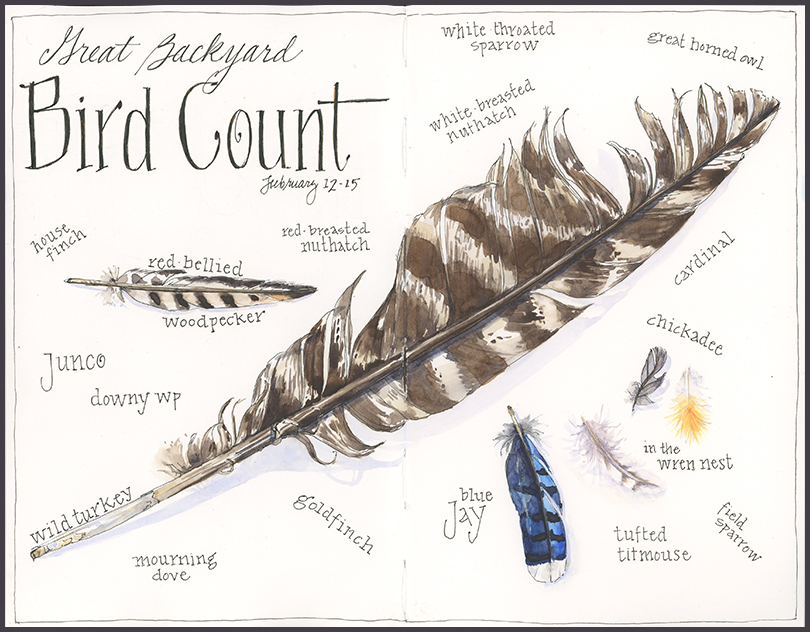 Great Backyard
Bird Count
February 12-15
white-throated
sparrow
great horned owl
white-breasted
nuthatch
house
finch
red-breasted
nuthatch
red-bellied
woodpecker
cardinal
chickadee
Junco
downy wp
in the
wren nest
wild turkey
goldfinch
blue
Jay
field
sparrow
tufted
titmouse
mourning
dove